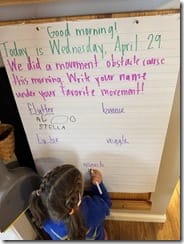 Good morning!
Today is Wednesday, April 29
We did a movment obstacle course
this morning. Write your name
under your favorite movement!
Flutter bounce
AL
STELLA
wiggle